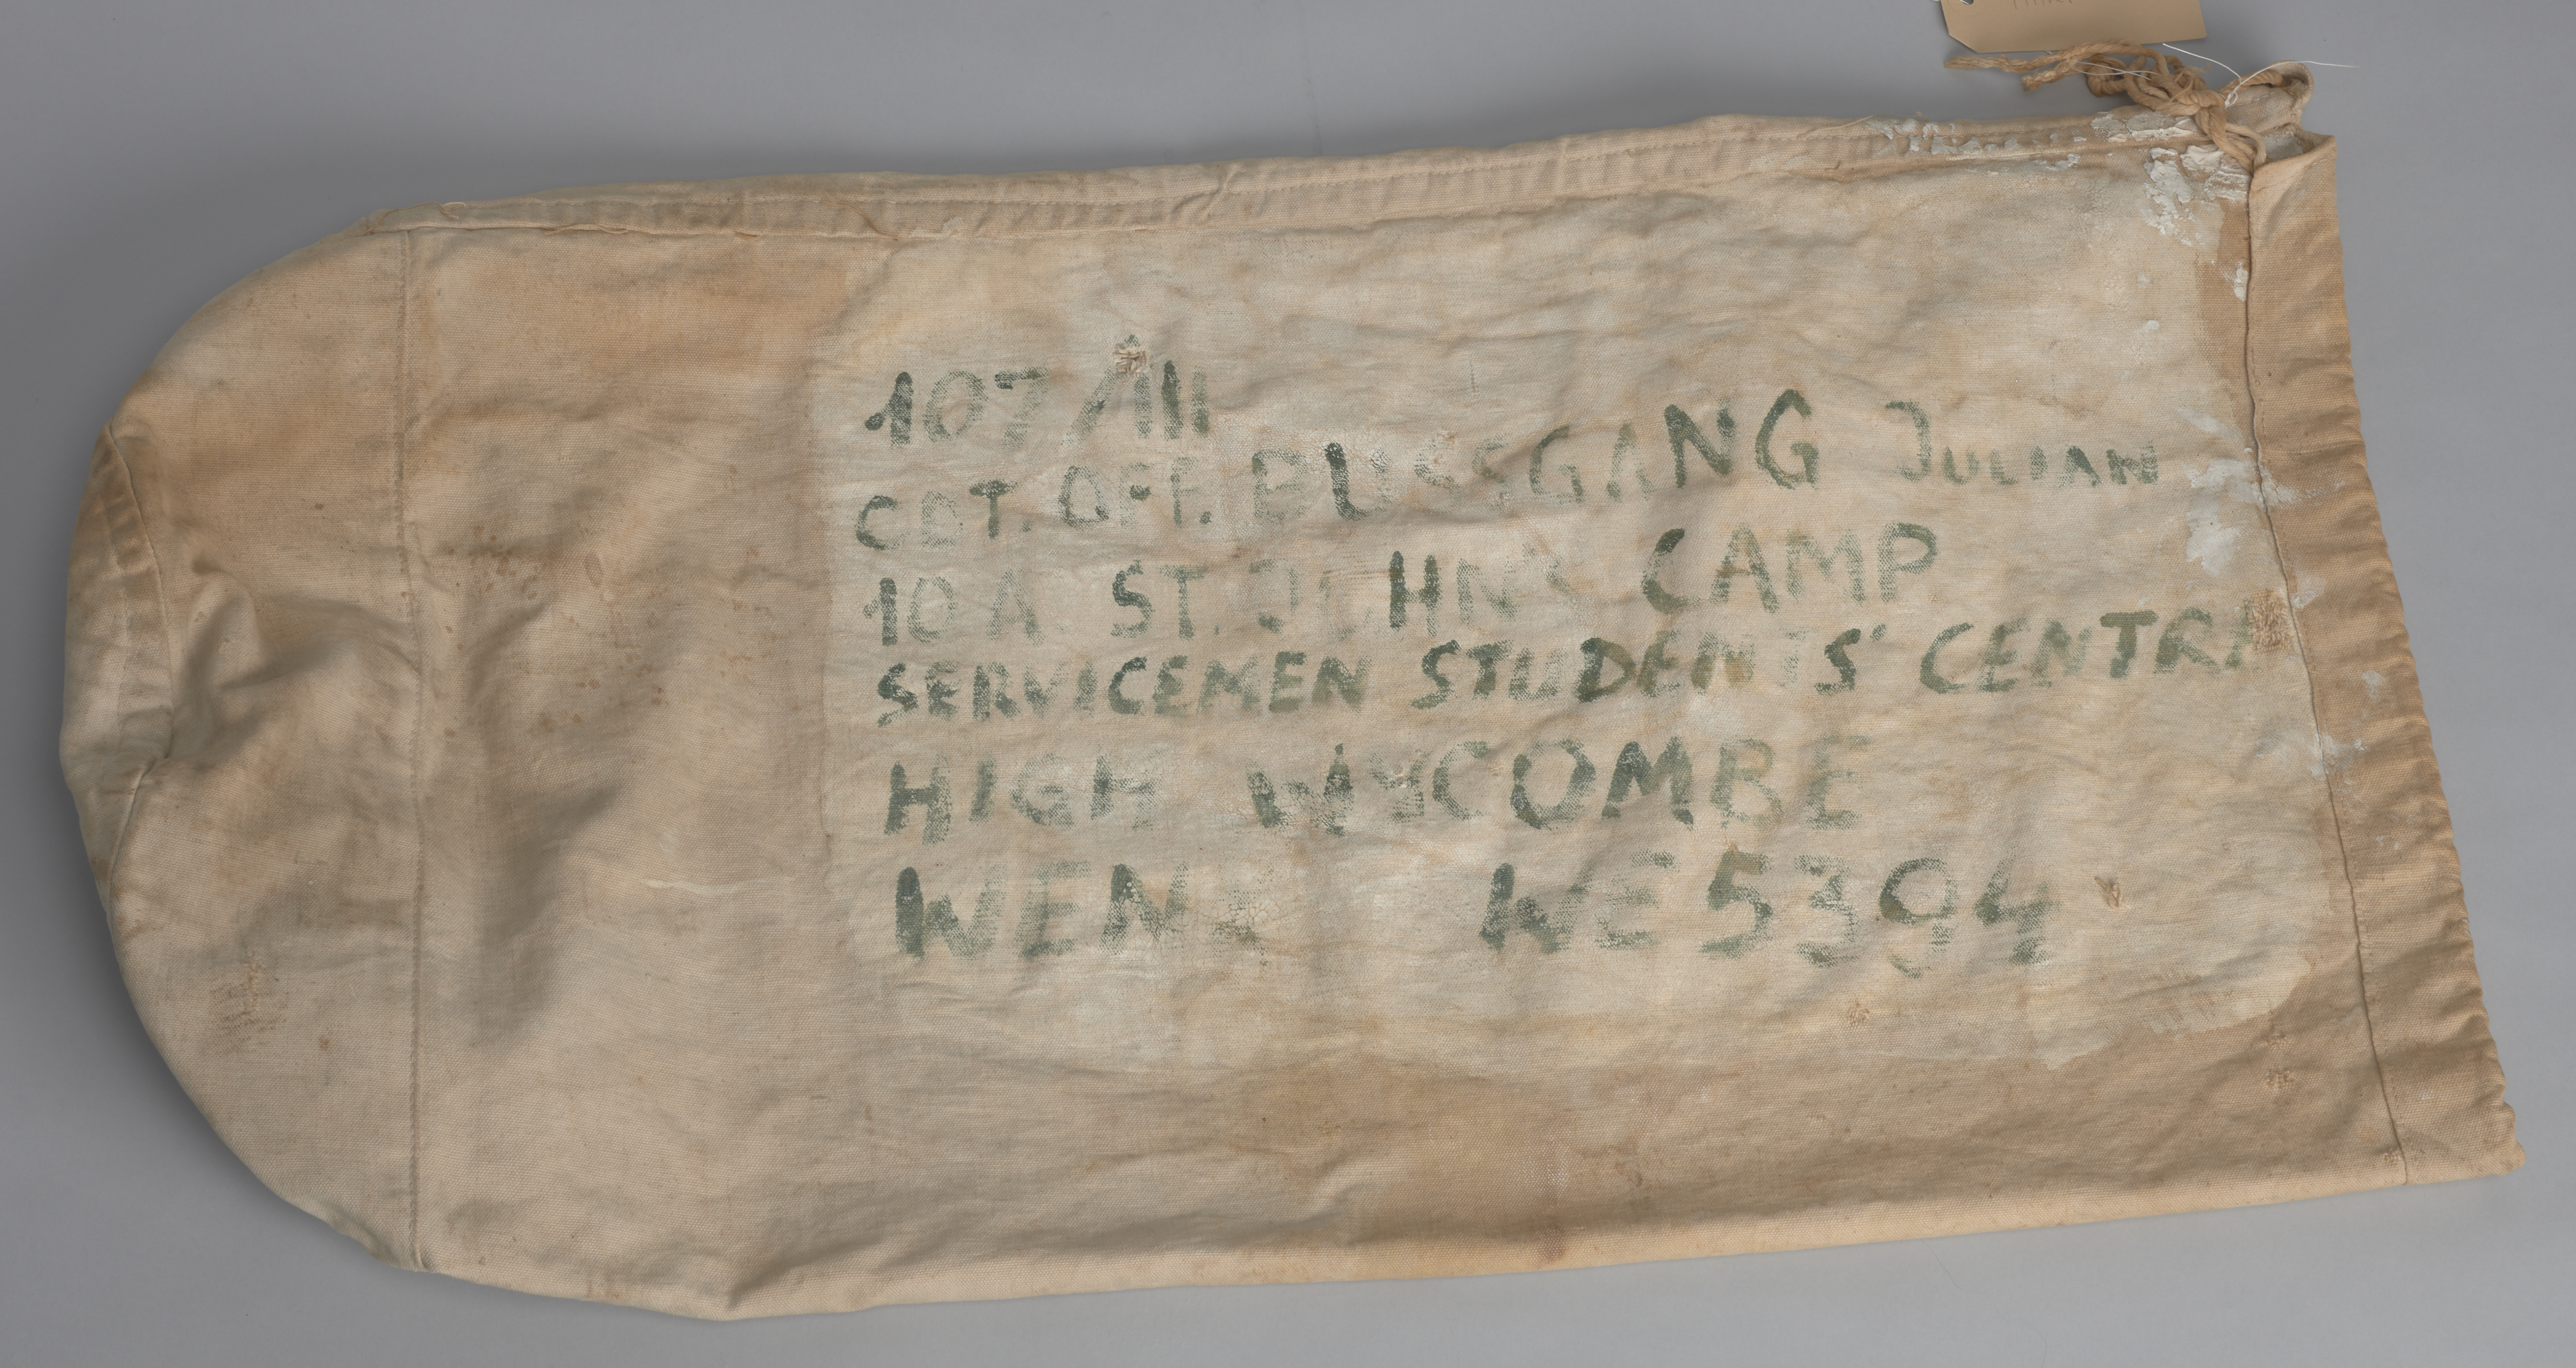 107/III
CDT. OFF. BUSSGANG JULIAN
10 A ST. JOHN'S CAMP
SERVICEMEN STUDENTS' CENTRE
HIGH WYCOMBE
WE5394